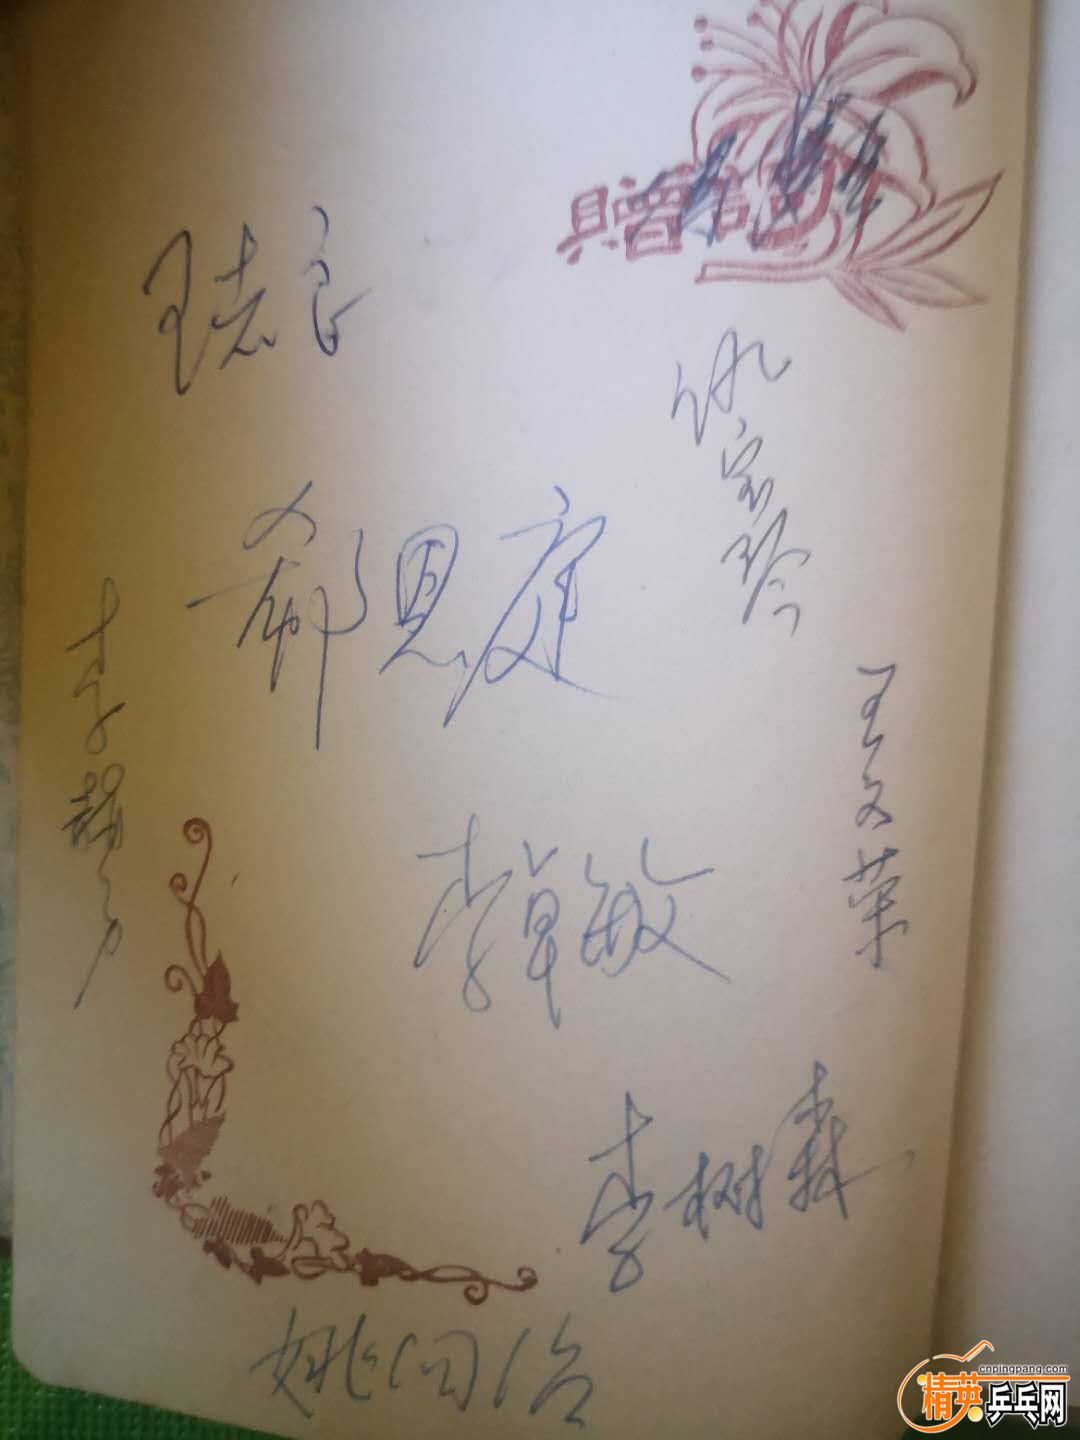 王志良
仇宝琴
郗恩庭
李赫男
王文荣
李卓敏
李树森
姚国治
cnpingpang.com
精英乒乓网